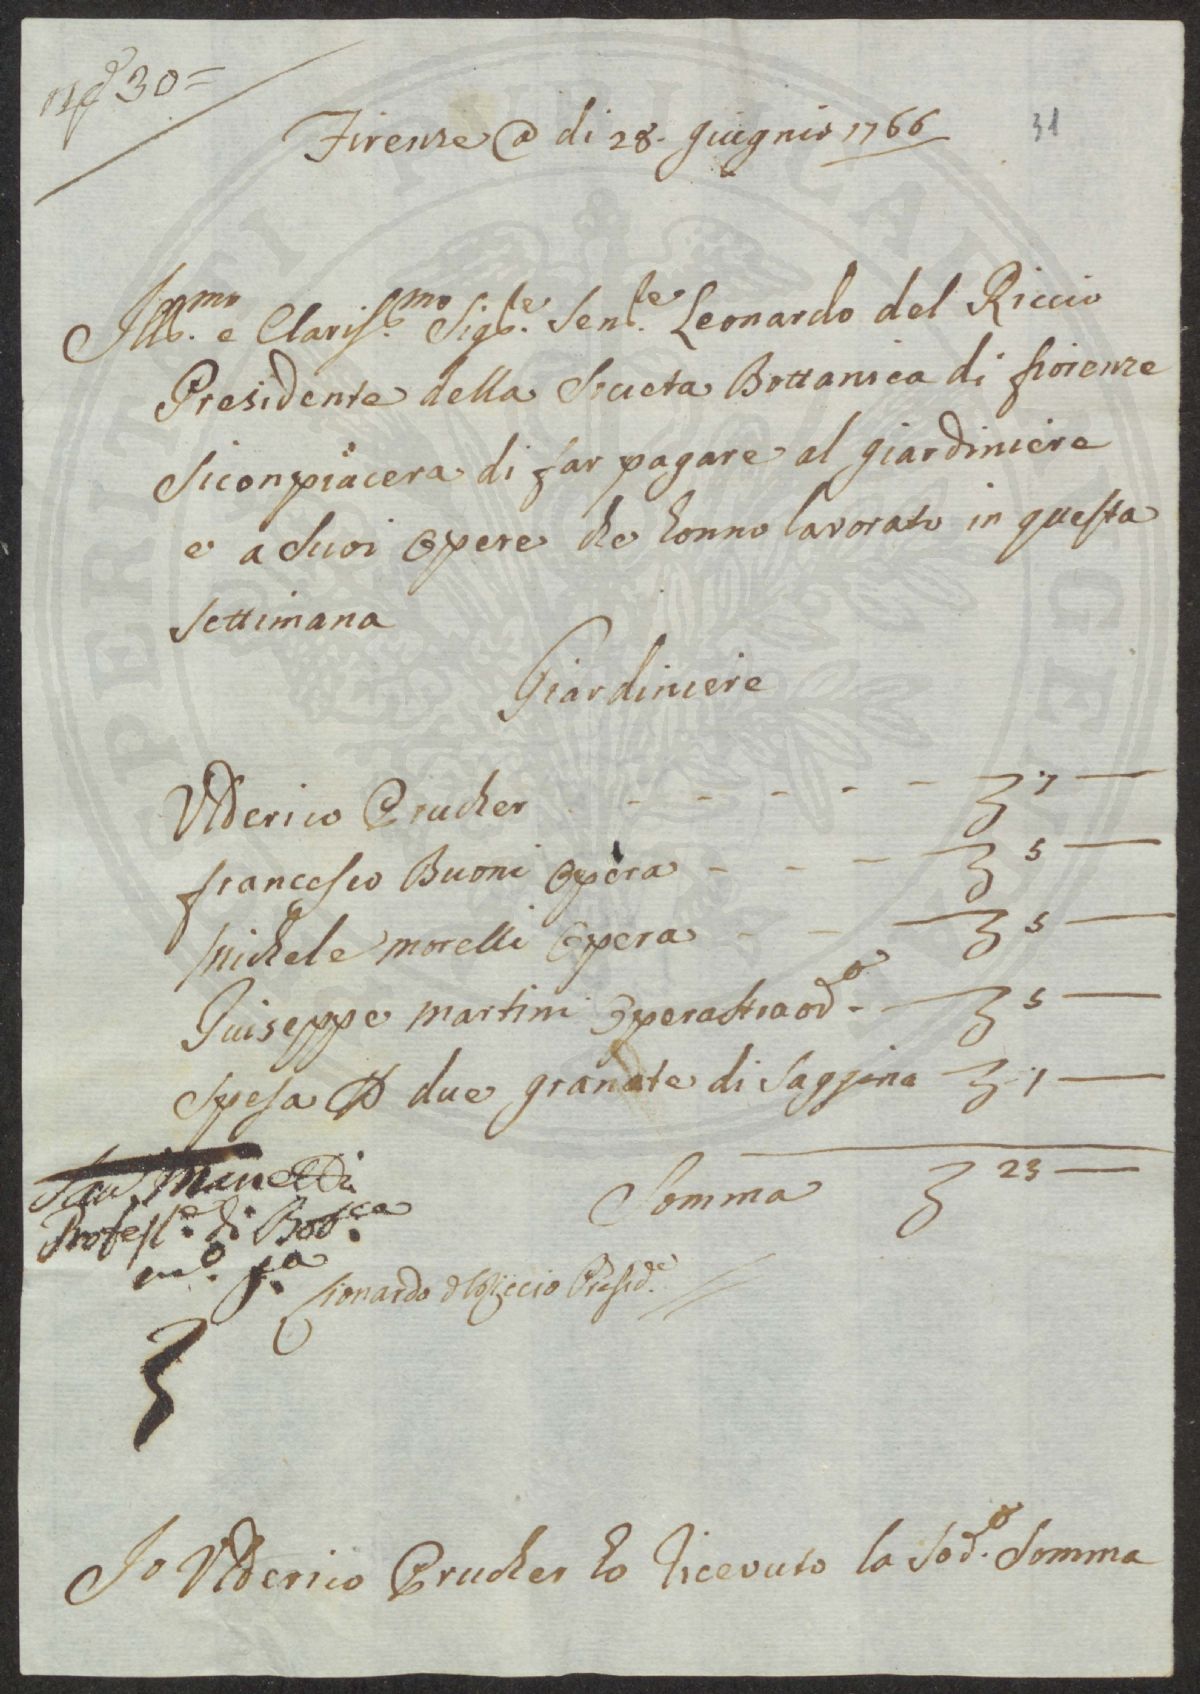 N° 30=
31
Firenze @ di 28. giugnio 1766
Ill.mo e Clariss.mo Sig.re Sen.re Leonardo del Riccio
Presidente della Sucieta Bottanica di fiorenze
Siconpiacera di far pagare al giardiniere
e a Suoi Opere che honno lavorato in questa
settimana
Giardiniere
Vlderico Prucher - - - - - 7 —
francesco Buoni Opera - - - 5 —
Michele morelli Opera - - 5 —
Guiseppe martini Operastraod.o - 5 —
Spesa P due granate di Saggina 1 —
Somma 23 —
Manetti
Profess.e di Bot.ca
m.o p.a
Lionardo del Riccio Presid.e
Io Vlderico Prucher ho ricevuto la Sod.a Somma
SPERITATI PUBLICAE